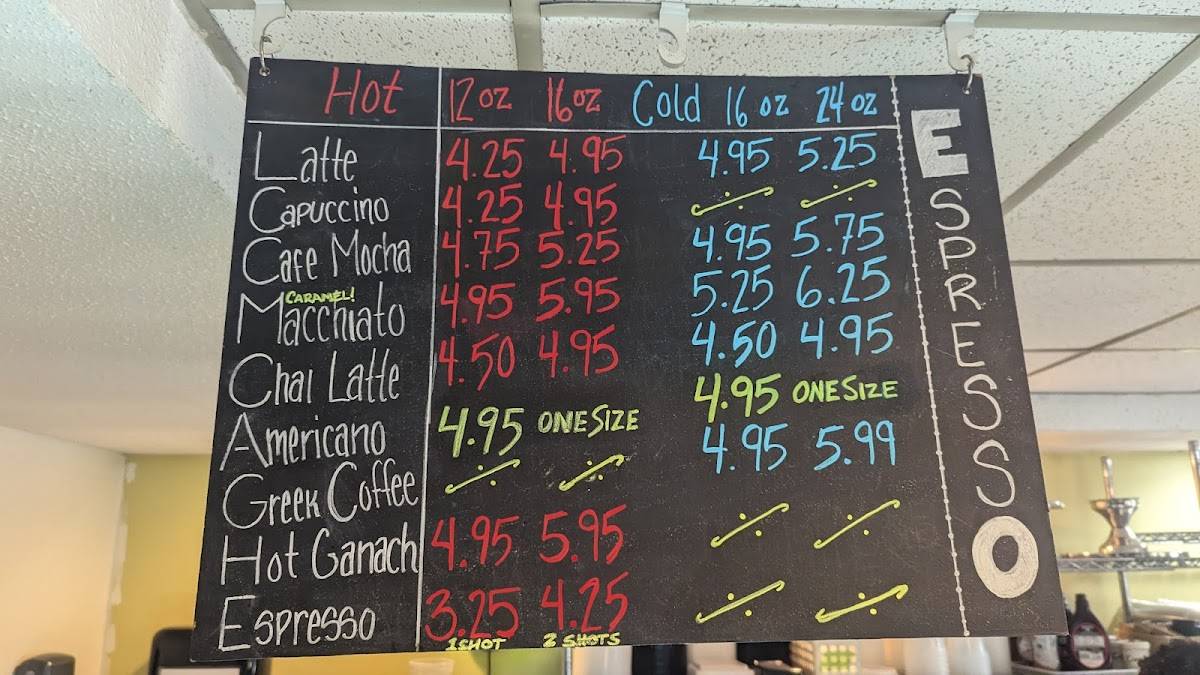 Hot 12 oz 16 oz Cold 16 oz 24 oz
Latte 4.25 4.95 4.95 5.25
Capuccino 4.25 4.95
Cafe Mocha 4.75 5.25 4.95 5.75
CARAMEL!
Macchiato 4.95 5.95 5.25 6.25
Chai Latte 4.50 4.95 4.50 4.95
Americano 4.95 ONE SIZE 4.95 ONE SIZE
Greek Coffee 4.95 5.99
Hot Ganach 4.95 5.95
Espresso 3.25 4.25
1 SHOT 2 SHOTS
ESPRESSO